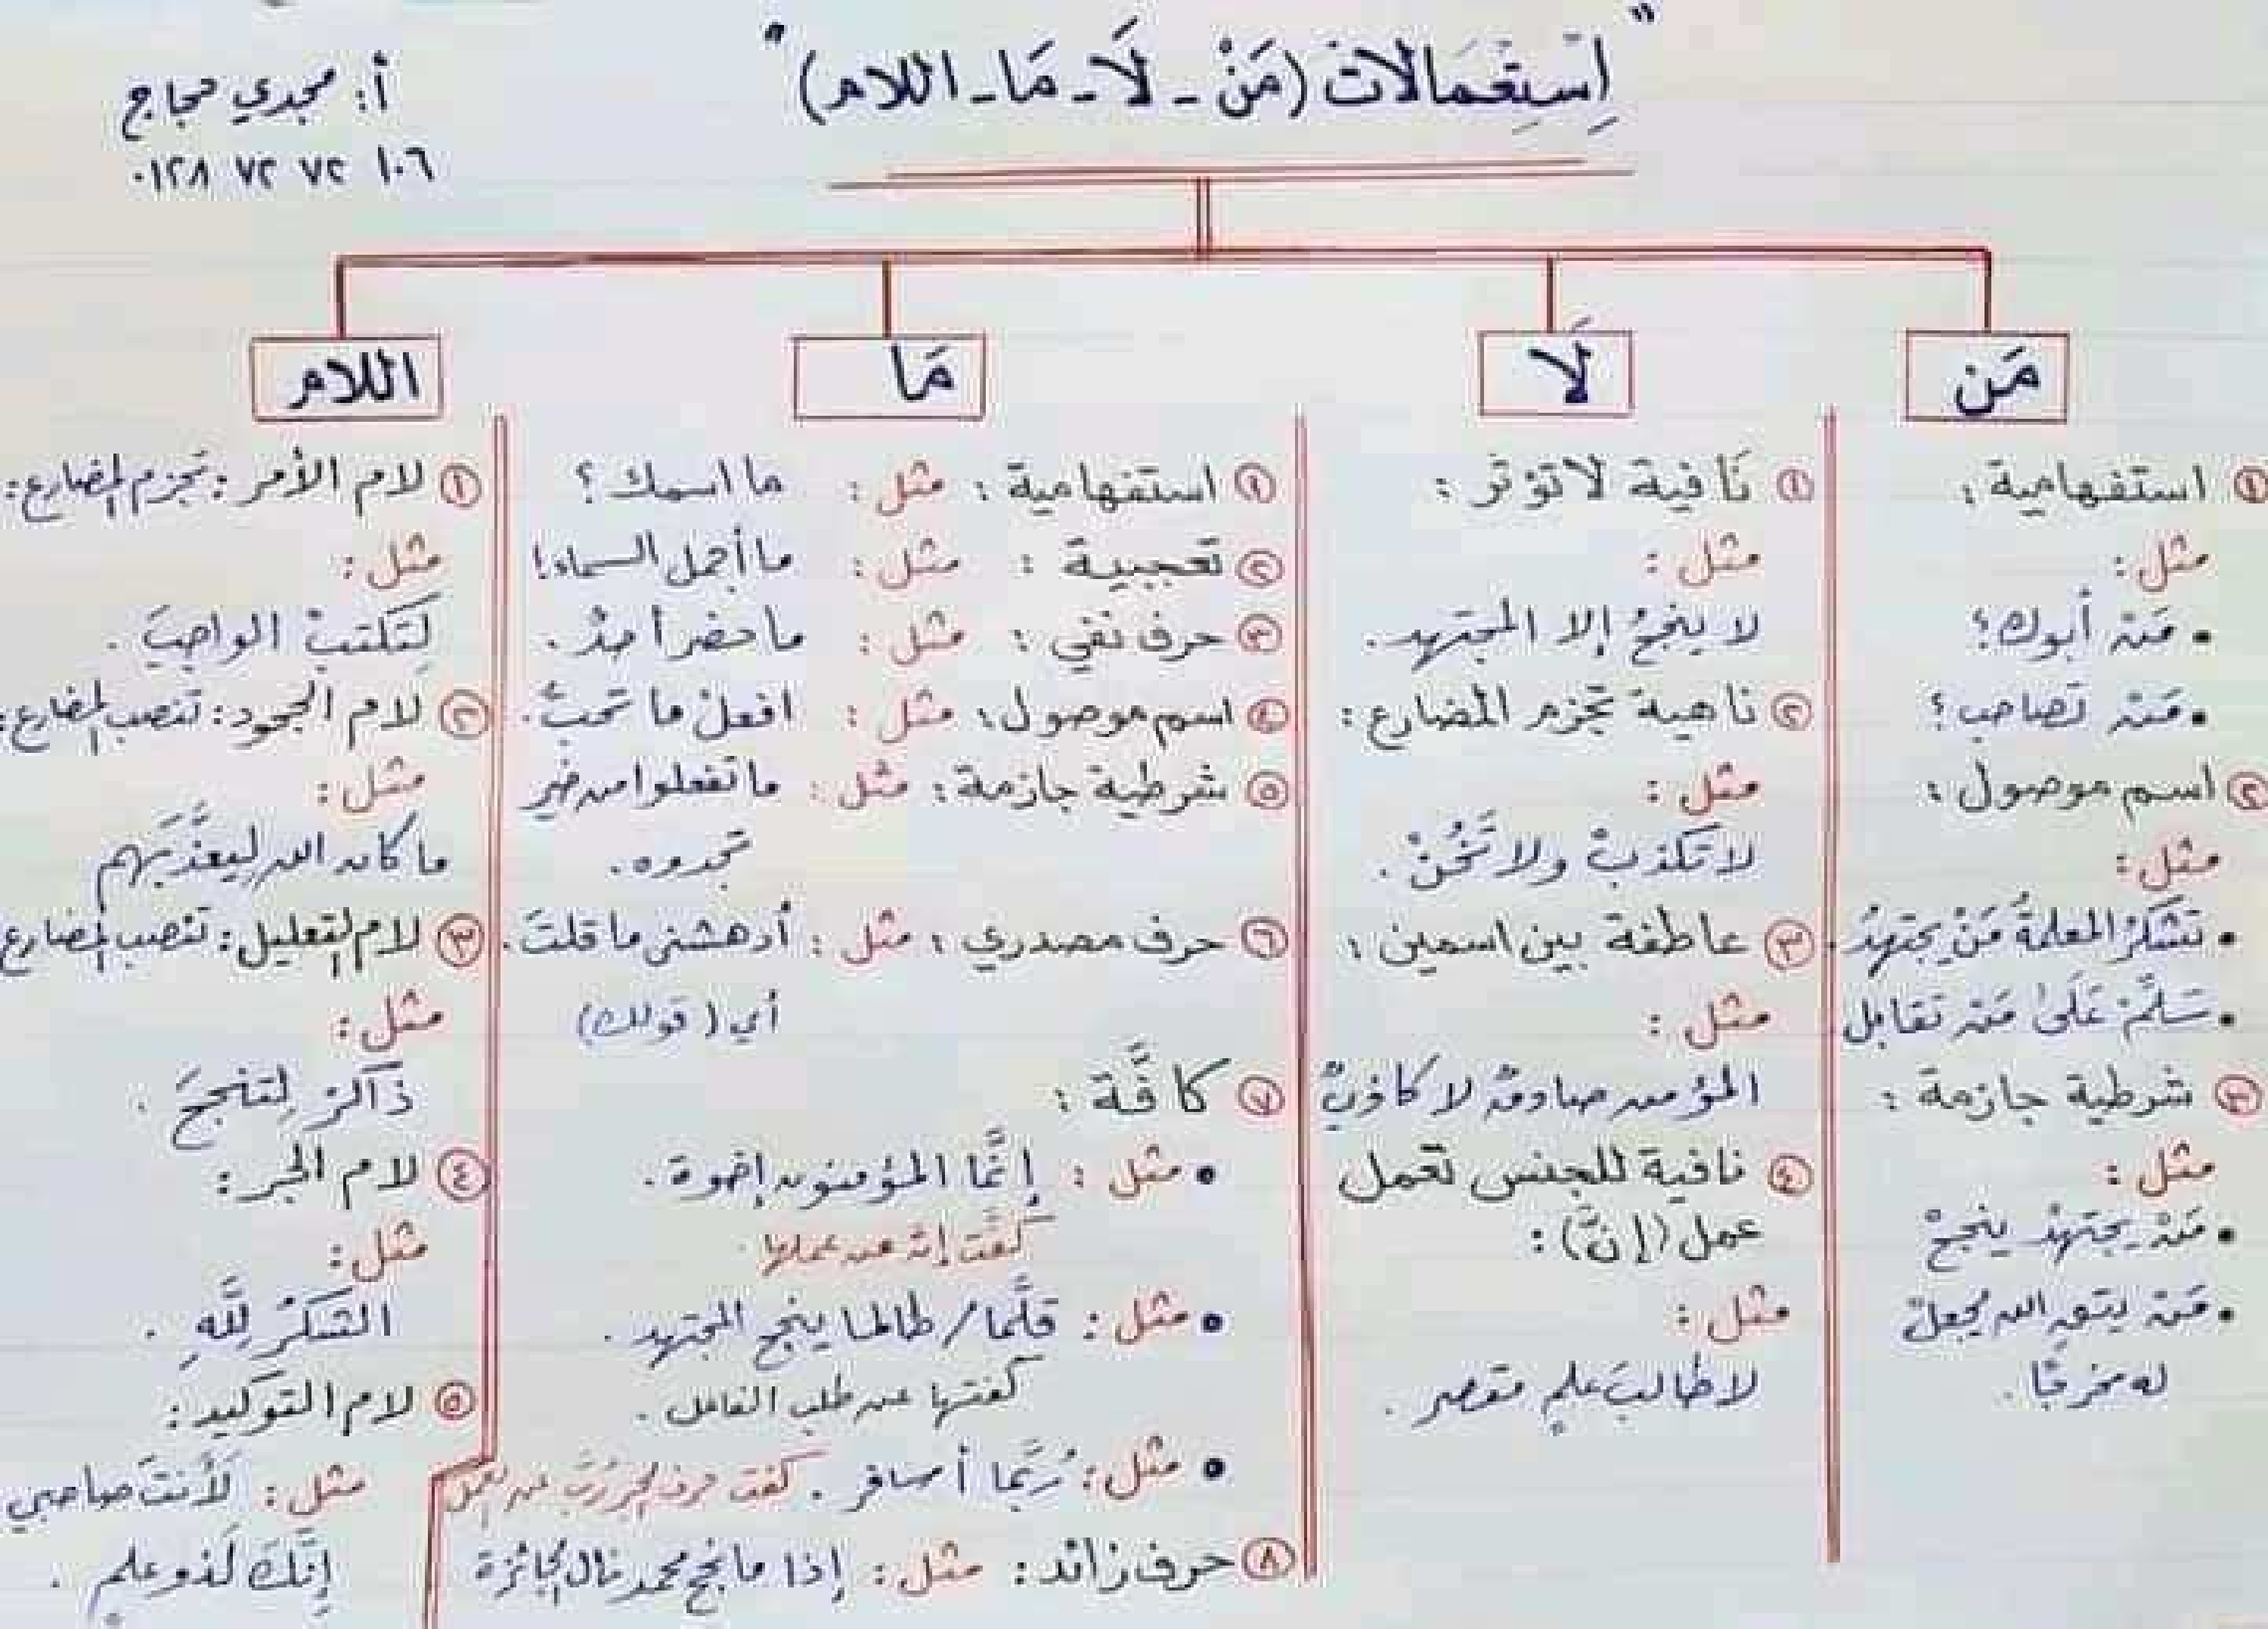 " اِسْتِعْمَالات (مَنْ - لَا - مَا - اللام) "
أ: مجدي حجاج
٠١٢٨ ٧٢ ٧٢ ١٠٦
مَن
① استفهامية :
مثل :
• مَنْ أبوك؟
• مَنْ تصاحب ؟
② اسم موصول :
مثل :
• تشكرُ المعلمةُ مَنْ يجتهدُ.
• سَلِّمْ عَلَى مَنْ تقابل
③ شرطية جازمة :
مثل :
• مَنْ يجتهدْ ينجحْ
• مَنْ يتقِ الله يجعلْ
له مخرجًا .
لَا
① نَافية لا تؤثر :
مثل :
لا ينجحُ إلا المجتهد.
② ناهية تجزم المضارع :
مثل :
لا تكذبْ ولا تَخُنْ .
③ عاطفة بين اسمين :
مثل :
المؤمن صادقٌ لا كاذبٌ
④ نافية للجنس تعمل
عمل (إنَّ) :
مثل :
لا طالبَ علمٍ مقصر .
مَا
① استفهامية : مثل : ما اسمك ؟
② تعجبية : مثل : ما أجمل السماء!
③ حرف نفي : مثل : ما حضر أحدٌ .
④ اسم موصول : مثل : افعلْ ما تحبُّ .
⑤ شرطية جازمة : مثل : ما تفعلوا من خير
تجدوه .
⑥ حرف مصدري : مثل : أدهشني ما قلتَ .
أي ( قولك )
⑦ كافَّة :
• مثل : إنَّما المؤمنون إخوة .
كفَّت إنَّ عن عملها .
• مثل : قلَّما / طالما ينجح المجتهد .
كفتها عن طلب الفاعل .
• مثل : رُبَّما أسافر . كفت حرف الجر رُبَّ عن العمل
⑧ حرف زائد : مثل : إذا ما نجح محمد نال الجائزة
اللام
① لام الأمر : تجزم المضارع :
مثل :
لِتَكتبْ الواجبَ .
② لام الجحود : تنصب المضارع :
مثل :
ما كان الله لِيعذِّبَهم
③ لام التعليل : تنصب المضارع
مثل :
ذَاكرْ لِتنجحَ .
④ لام الجر :
مثل :
الشكرُ لِلَّهِ .
⑤ لام التوكيد :
مثل : لَأنتَ صاحبي
إِنَّكَ لَذو علمٍ .